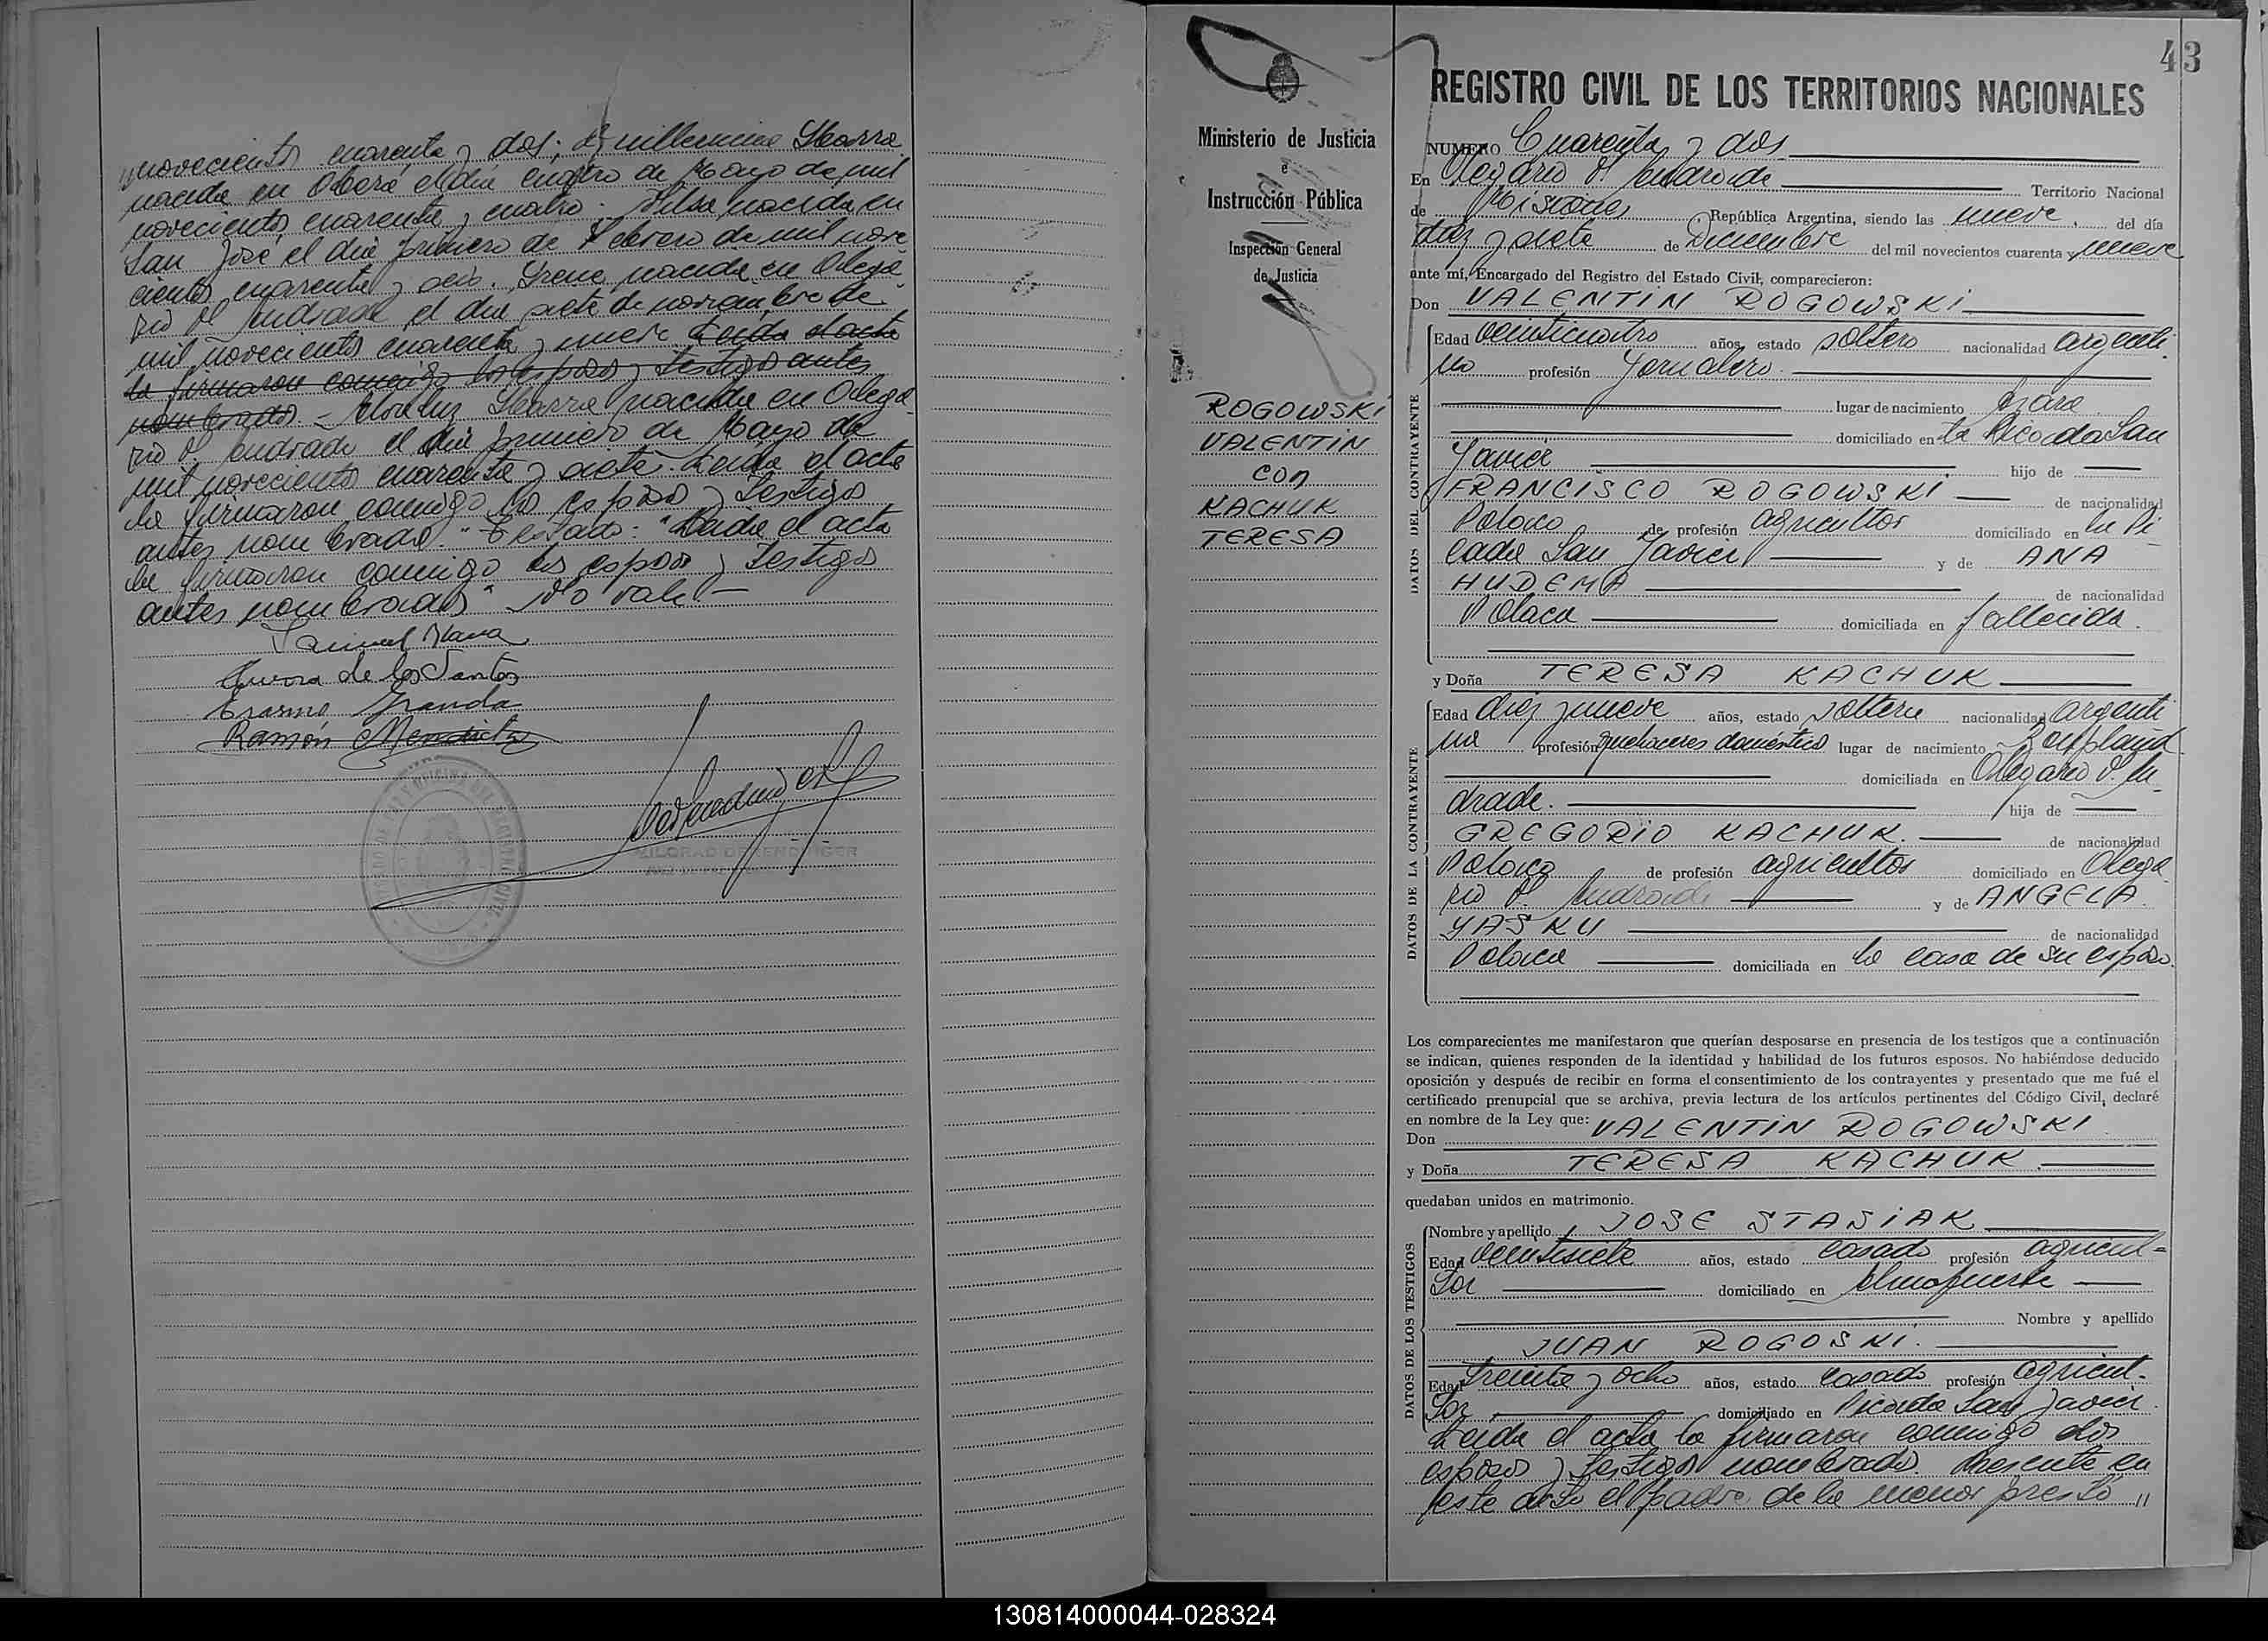 novecientos cuarenta y dos; Guillermina Ibarra
nacida en Oberá el día cuatro de Mayo de mil
novecientos cuarenta y cuatro. Silva nacida en
San José el día primero de Febrero de mil nove
cientos cuarenta y seis. Irene nacida en Olega-
rio V. Andrade el día siete de noviembre de
mil novecientos cuarenta y nueve Leida el acta
la firmaron conmigo los esposos y testigos antes
nombrados. - Ibarra nacida en Olega-
rio V. Andrade el día primero de Mayo de
mil novecientos cuarenta y siete. Leida el acta
la firmaron conmigo los esposos y testigos
antes nombrados. - Testado: "Leida el acta
la firmaron conmigo los esposos y testigos
antes nombrados" No vale -
de los Santos
Erasmo Granda
Ramón
43
Ministerio de Justicia
e
Instrucción Pública
Inspección General
de Justicia
ROGOWSKI
VALENTIN
con
KACHUK
TERESA
REGISTRO CIVIL DE LOS TERRITORIOS NACIONALES
NUMERO Cuarenta y dos
En Olegario V. Andrade Territorio Nacional
de Misiones República Argentina, siendo las nueve del día
diez y siete de Diciembre del mil novecientos cuarenta y nueve
ante mí, Encargado del Registro del Estado Civil, comparecieron:
Don VALENTIN ROGOWSKI
DATOS DEL CONTRAYENTE
Edad veinticuatro años, estado soltero nacionalidad argenti
no profesión Jornalero.
lugar de nacimiento Azara
domiciliado en la Picada San
Javier hijo de
FRANCISCO ROGOWSKI de nacionalidad
Polaco de profesión agricultor domiciliado en la Pi
cada San Javier y de ANA
HUDEMA de nacionalidad
Polaca domiciliada en fallecida.
y Doña TERESA KACHUK
DATOS DE LA CONTRAYENTE
Edad diez y nueve años, estado soltera nacionalidad argenti
na profesión quehaceres domésticos lugar de nacimiento Bonpland
domiciliada en Olegario V. An
drade. hija de
GREGORIO KACHUK. de nacionalidad
Polaco de profesión agricultor domiciliado en Olega
rio V. Andrade y de ANGELA
YASKU de nacionalidad
Polaca domiciliada en la casa de su esposo.
Los comparecientes me manifestaron que querían desposarse en presencia de los testigos que a continuación
se indican, quienes responden de la identidad y habilidad de los futuros esposos. No habiéndose deducido
oposición y después de recibir en forma el consentimiento de los contrayentes y presentado que me fué el
certificado prenupcial que se archiva, previa lectura de los artículos pertinentes del Código Civil, declaré
en nombre de la Ley que:
Don VALENTIN ROGOWSKI
y Doña TERESA KACHUK.
quedaban unidos en matrimonio.
DATOS DE LOS TESTIGOS
Nombre y apellido JOSE STASIAK
Edad veintisiete años, estado casado profesión agricul=
tor domiciliado en Almafuerte
Nombre y apellido
JUAN ROGOSKI.
Edad treinta y ocho años, estado casado profesión agricul-
tor domiciliado en Picada San Javier.
Leida el acta la firmaron conmigo los
esposos y testigos nombrados. Presente en
este acto el padre de la menor prestó "
130814000044-028324